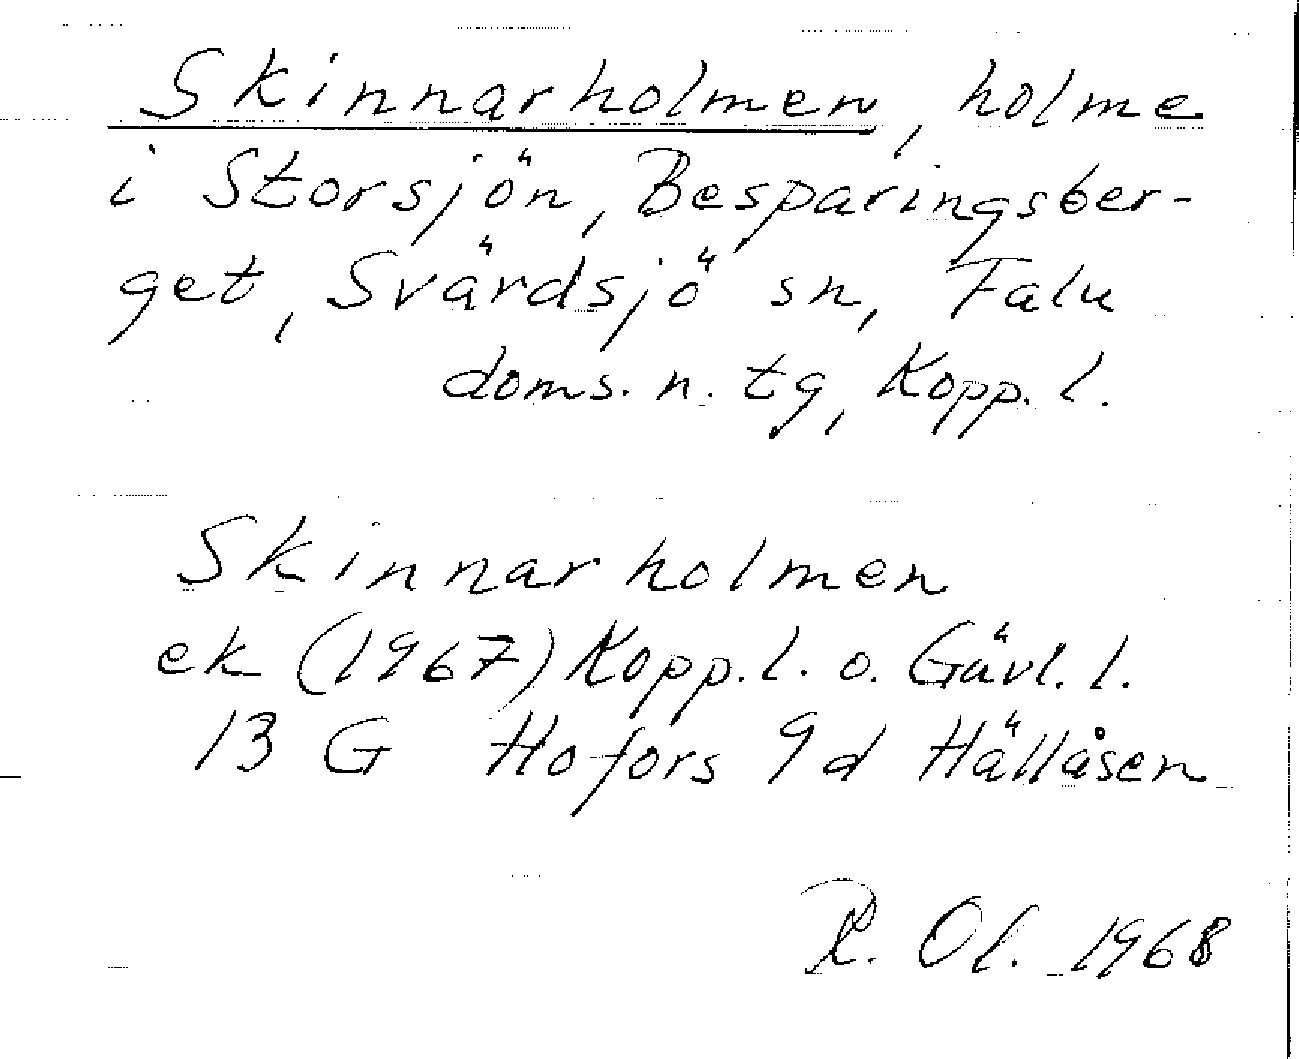 Skinnarholmen, holme
i Storsjön, Besparingsber-
get, Svärdsjö sn, Falu
doms. n. tg, Kopp. l.
Skinnarholmen
ek (1967) Kopp. l. o. Gävl. l.
13 G Hofors 9d Hällåsen
R. Ol. 1968